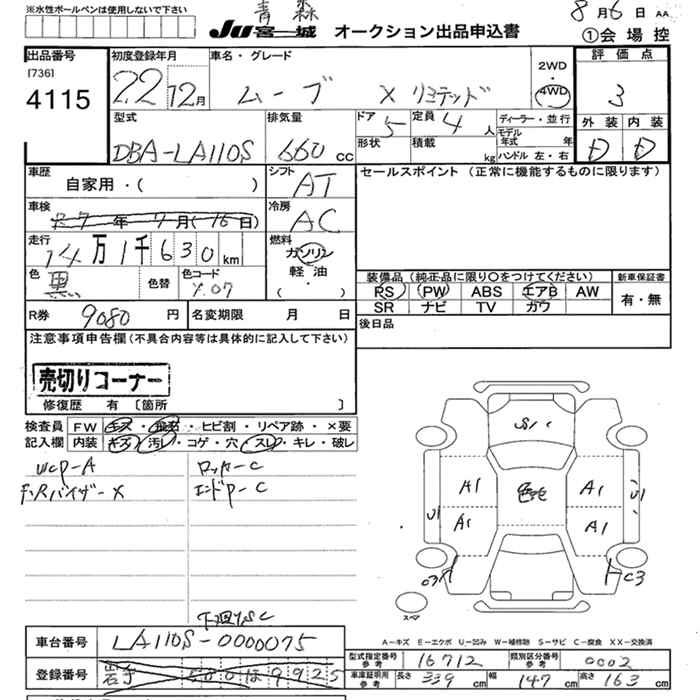 ※水性ボールペンは使用しないで下さい
青森
JU宮城 オークション出品申込書
8月6日 AA
①会場控
出品番号
[736]
4115
初度登録年月
22 12月
車名・グレード
ムーブ X リミテッド
2WD
・
4WD
評価点
3
型式
DBA-LA110S
排気量
660 cc
ドア
5
定員
4 人
形状
積載
kg
ディーラー・並行
モデル年式 年
ハンドル 左・右
外装 内装
D D
車歴
自家用・( )
シフト
AT
セールスポイント (正常に機能するものに限ります)
車検
R7年 9月(16日)
冷房
AC
走行
14万1千630km
燃料
ガソリン
軽油・
( )
色
黒
色替
色コード
X07
装備品(純正品に限り〇をつけてください)
新車保証書
PS PW ABS エアB AW
有・無
SR ナビ TV ガワ
R券
9080円
名変期限 月 日
後日品
注意事項申告欄(不具合内容等は具体的に記入して下さい)
売切りコーナー
修復歴 有 〔箇所 〕
検査員
記入欄
FW キズ・飛石・ヒビ割・リペア跡・×要
内装 キズ・汚レ・コゲ・穴・スレ・キレ・破レ
WCP-A
ロッカーC
ドアバイザーX
エンドP-C
S/
A1
色セ
A1
U1
A1
A1
U1
C3
C3
スペア
下廻りSC
A-キズ E-エクボ U-凹み W-補修跡 S-サビ C-腐食 XX-交換済
車台番号
LA110S-0000075
登録番号
岩手 580 ほ 9925
型式指定番号
参考
16712
類別区分番号
参考
0002
車庫証明用
参考
長さ 339cm
幅 147cm
高さ 163cm